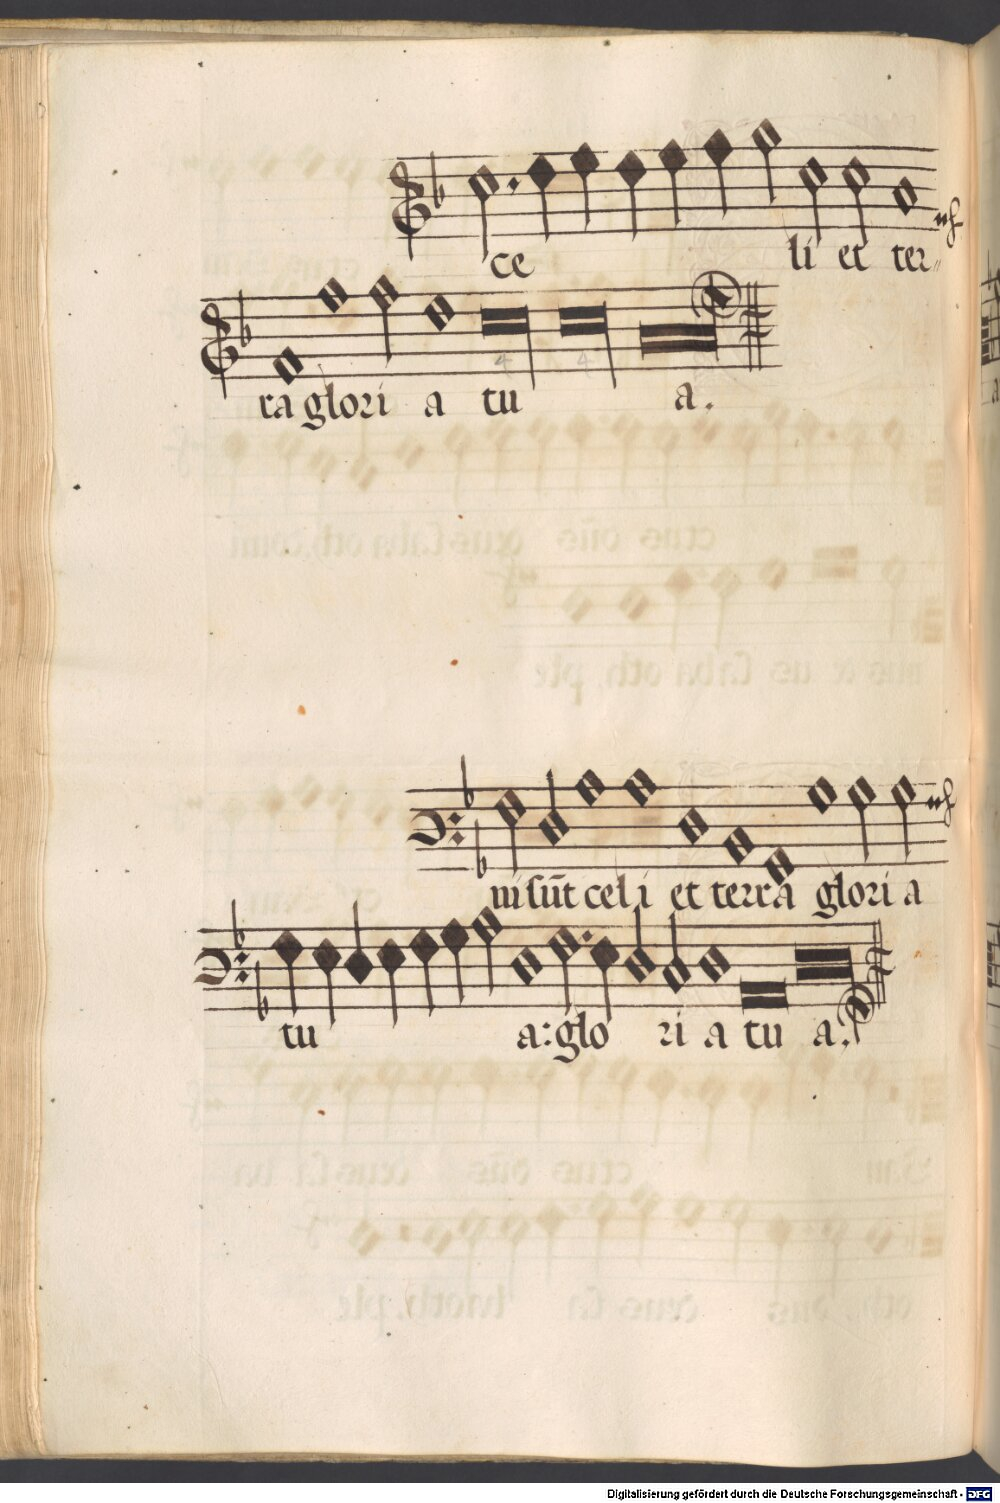 ce li et ter-
ra glori a tu a.
4 4
ni sūt celi et terra gloria
tu a: glo ri a tu a:
Digitalisierung gefördert durch die Deutsche Forschungsgemeinschaft - DFG